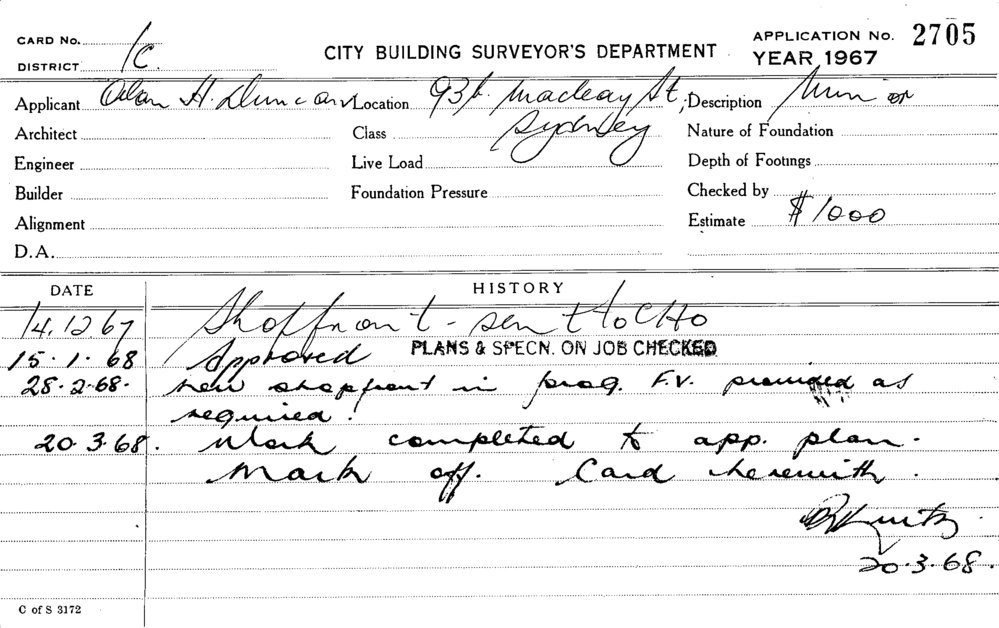 CARD No.
DISTRICT 1C.
CITY BUILDING SURVEYOR'S DEPARTMENT
APPLICATION No. 2705
YEAR 1967
Applicant Alan H. Duncan Location 93b. Macleay St, Description Minor
Architect Class Sydney Nature of Foundation
Engineer Live Load Depth of Footings
Builder Foundation Pressure Checked by
Alignment Estimate $1000
D.A.
DATE HISTORY
14.12.67 Shopfront - sent to CHO
15.1.68 Approved PLANS & SPECN. ON JOB CHECKED
28.2.68. New shopfront in prog. F.V. provided as
required.
20.3.68. Work completed to app. plan.
Mark off. Card herewith.
20.3.68.
C of S 3172